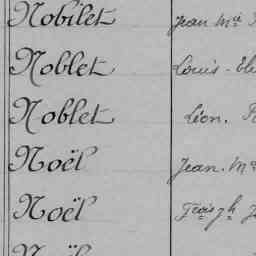 Nobilet Jean Mie
Noblet Louis - Ele
Noblet Léon.
Noël Jean. Ma
Noël Frois Jh